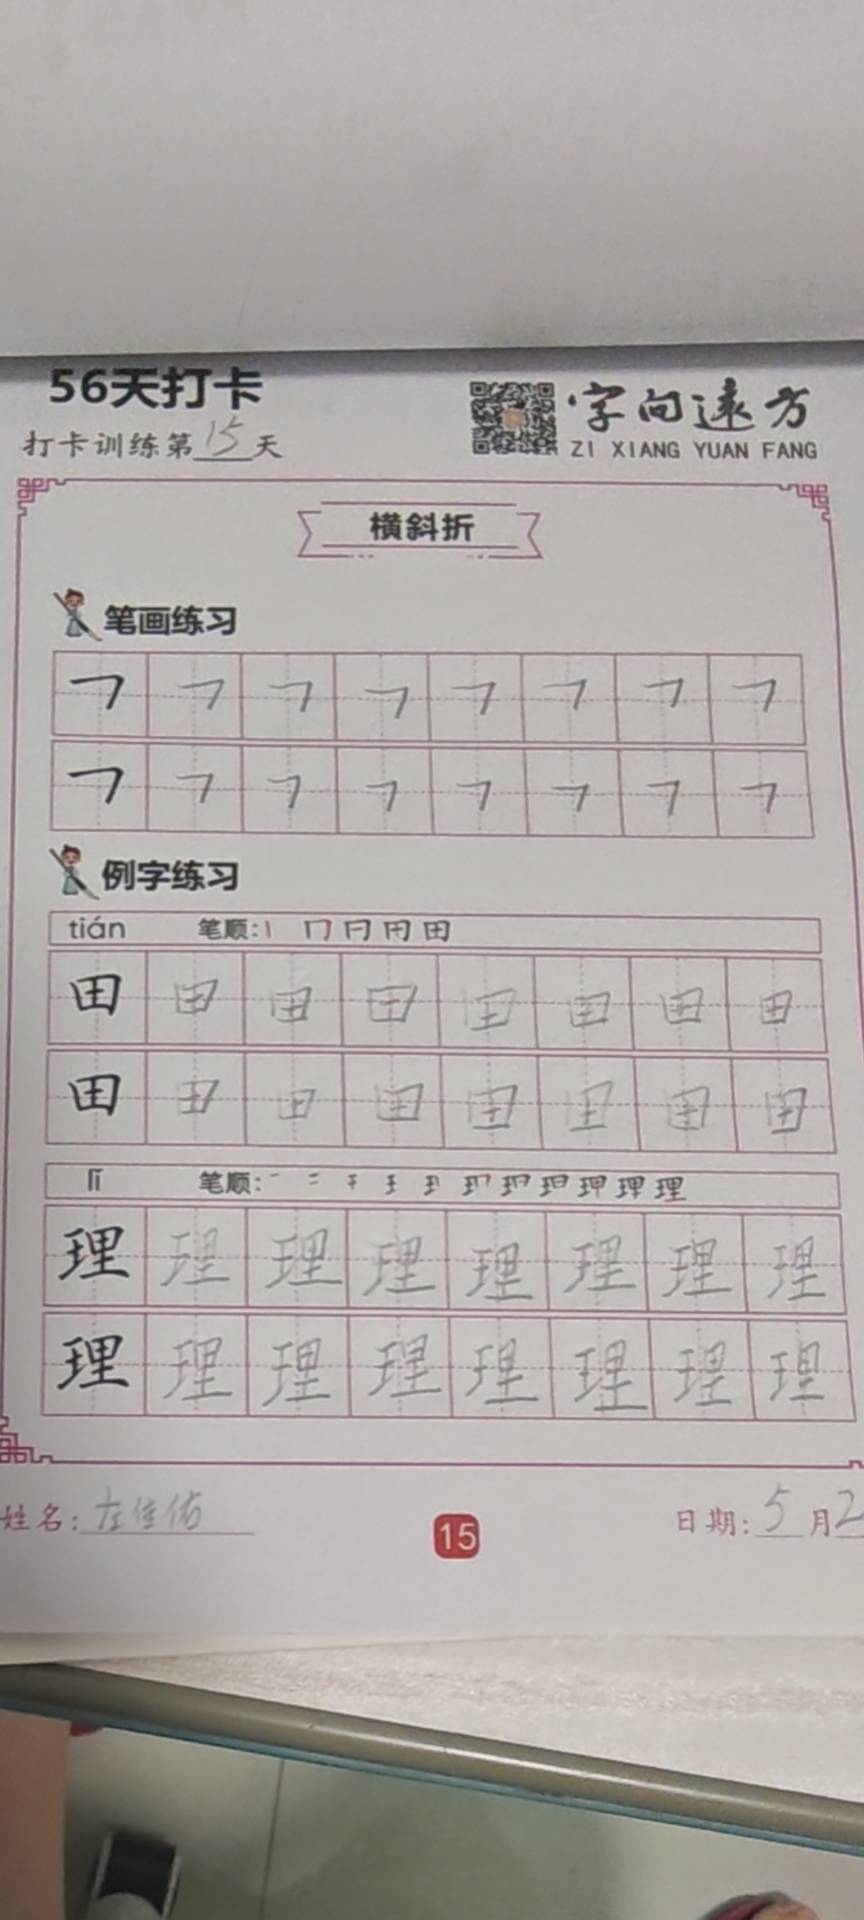 56天打卡
打卡训练第15天
字向远方
ZI XIANG YUAN FANG
横斜折
笔画练习
㇇ ㇇ ㇇ ㇇ ㇇ ㇇ ㇇ ㇇
㇇ ㇇ ㇇ ㇇ ㇇ ㇇ ㇇ ㇇
例字练习
tián 笔顺: 田
田 田 田 田 田 田 田 田
田 田 田 田 田 田 田 田
lǐ 笔顺: 理
理 理 理 理 理 理 理 理
理 理 理 理 理 理 理 理
姓名: 左佳佑
15
日期: 5月2